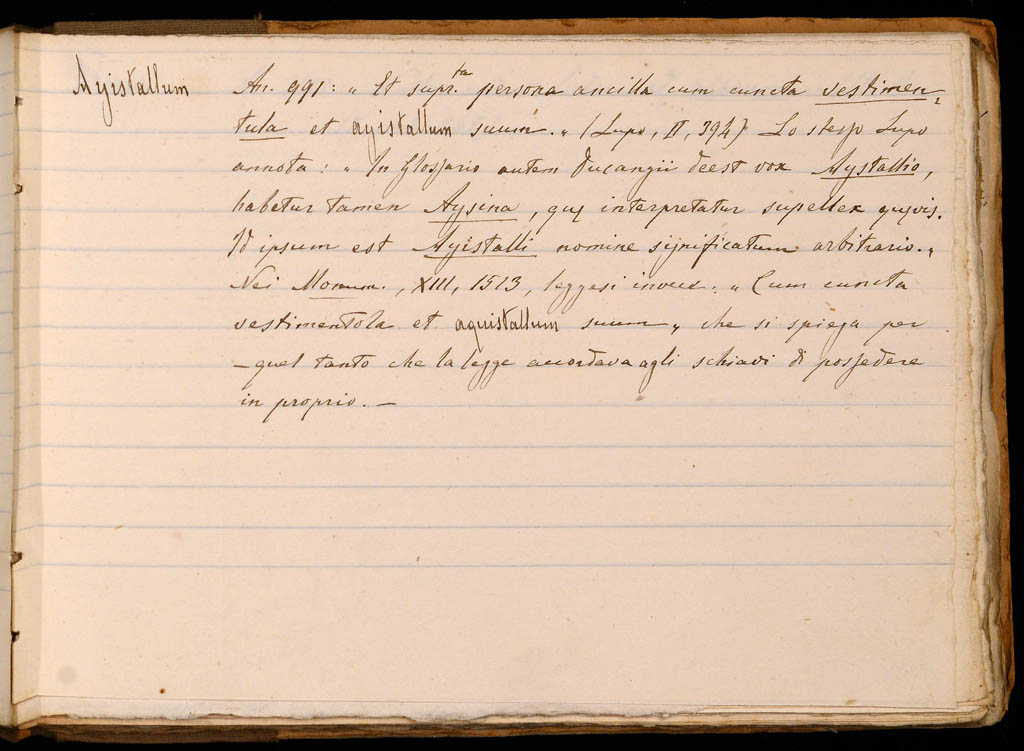 Ayistallum An. 991: „ Et supr.ta persona ancilla cum cuncta vestimen-
tula et ayistallum suum. „ (Lupo, II, 394) Lo stesso Lupo
annota: „ In Glossario autem Ducangii deest vox Aystallio,
habetur tamen Aysina, quę interpretatur supellex quęvis.
Id ipsum est Ayistalli nomine significatum arbitrario. „
Nei Monum., XIII, 1513, leggesi invece: „ Cum cuncta
vestimentola et aquistallum suum „ che si spiega per
– quel tanto che la legge accordava agli schiavi di possedere
in proprio. –